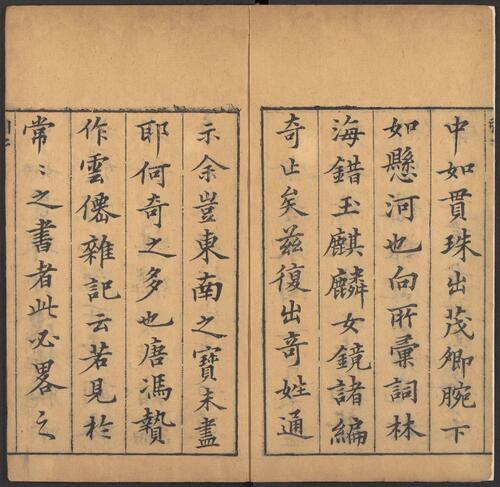 中如貫珠出茂卿腕下
如懸河也向所彙詞林
海錯玉麒麟女鏡諸編
奇止矣茲復出奇姓通
示余豈東南之寶未盡
耶何奇之多也唐馮贄
作雲僊雜記云若見於
常〻之書者此必畧之